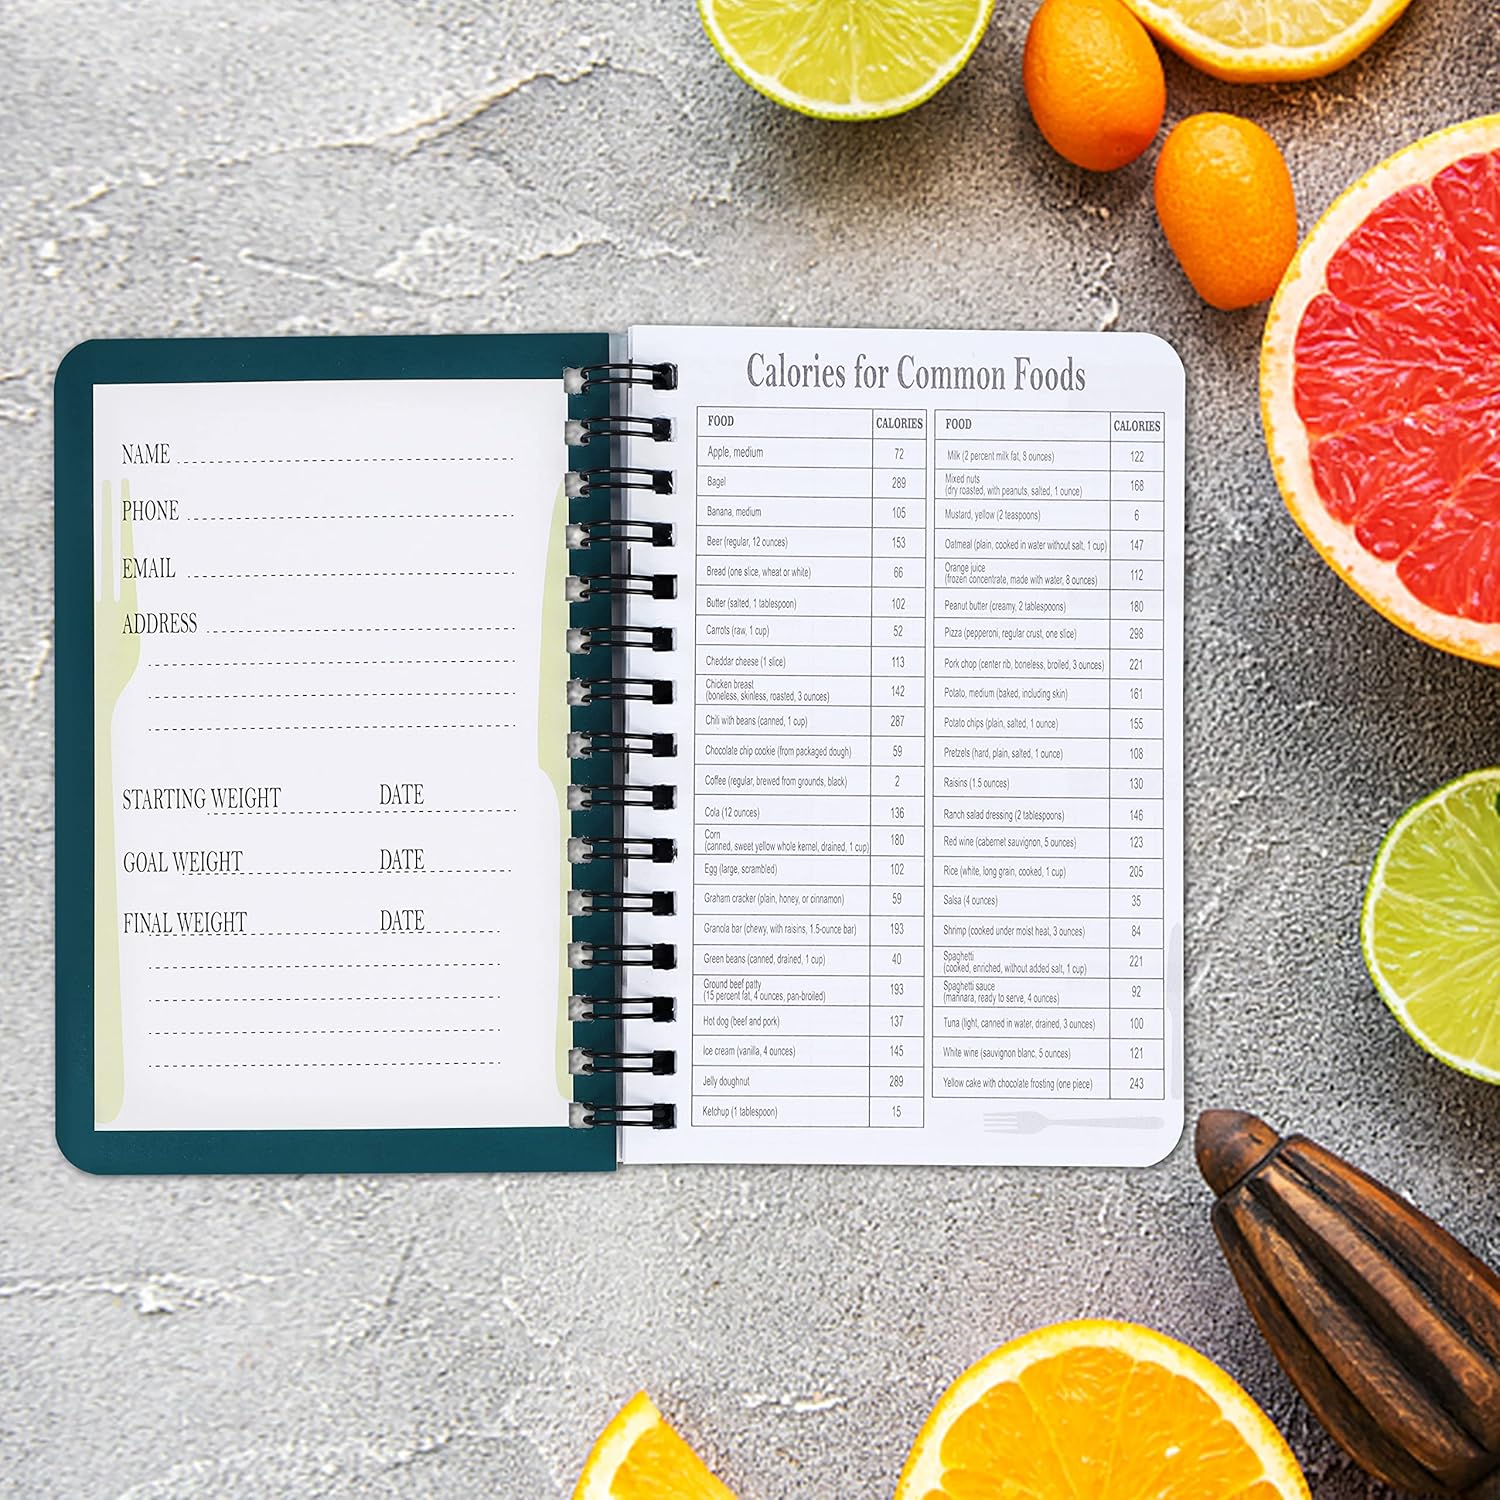 NAME
PHONE
EMAIL
ADDRESS
STARTING WEIGHT DATE
GOAL WEIGHT DATE
FINAL WEIGHT DATE
Calories for Common Foods
FOOD CALORIES
Apple, medium 72
Bagel 289
Banana, medium 105
Beer (regular, 12 ounces) 153
Bread (one slice, wheat or white) 66
Butter (salted, 1 tablespoon) 102
Carrots (raw, 1 cup) 52
Cheddar cheese (1 slice) 113
Chicken breast
(boneless, skinless, roasted, 3 ounces) 142
Chili with beans (canned, 1 cup) 287
Chocolate chip cookie (from packaged dough) 59
Coffee (regular, brewed from grounds, black) 2
Cola (12 ounces) 136
Corn
(canned, sweet yellow whole kernel, drained, 1 cup) 180
Egg (large, scrambled) 102
Graham cracker (plain, honey, or cinnamon) 59
Granola bar (chewy, with raisins, 1.5-ounce bar) 193
Green beans (canned, drained, 1 cup) 40
Ground beef patty
(15 percent fat, 4 ounces, pan-broiled) 193
Hot dog (beef and pork) 137
Ice cream (vanilla, 4 ounces) 145
Jelly doughnut 289
Ketchup (1 tablespoon) 15
FOOD CALORIES
Milk (2 percent milk fat, 8 ounces) 122
Mixed nuts
(dry roasted, with peanuts, salted, 1 ounce) 168
Mustard, yellow (2 teaspoons) 6
Oatmeal (plain, cooked in water without salt, 1 cup) 147
Orange juice
(frozen concentrate, made with water, 8 ounces) 112
Peanut butter (creamy, 2 tablespoons) 180
Pizza (pepperoni, regular crust, one slice) 298
Pork chop (center rib, boneless, broiled, 3 ounces) 221
Potato, medium (baked, including skin) 161
Potato chips (plain, salted, 1 ounce) 155
Pretzels (hard, plain, salted, 1 ounce) 108
Raisins (1.5 ounces) 130
Ranch salad dressing (2 tablespoons) 146
Red wine (cabernet sauvignon, 5 ounces) 123
Rice (white, long grain, cooked, 1 cup) 205
Salsa (4 ounces) 35
Shrimp (cooked under moist heat, 3 ounces) 84
Spaghetti
(cooked, enriched, without added salt, 1 cup) 221
Spaghetti sauce
(marinara, ready to serve, 4 ounces) 92
Tuna (light, canned in water, drained, 3 ounces) 100
White wine (sauvignon blanc, 5 ounces) 121
Yellow cake with chocolate frosting (one piece) 243